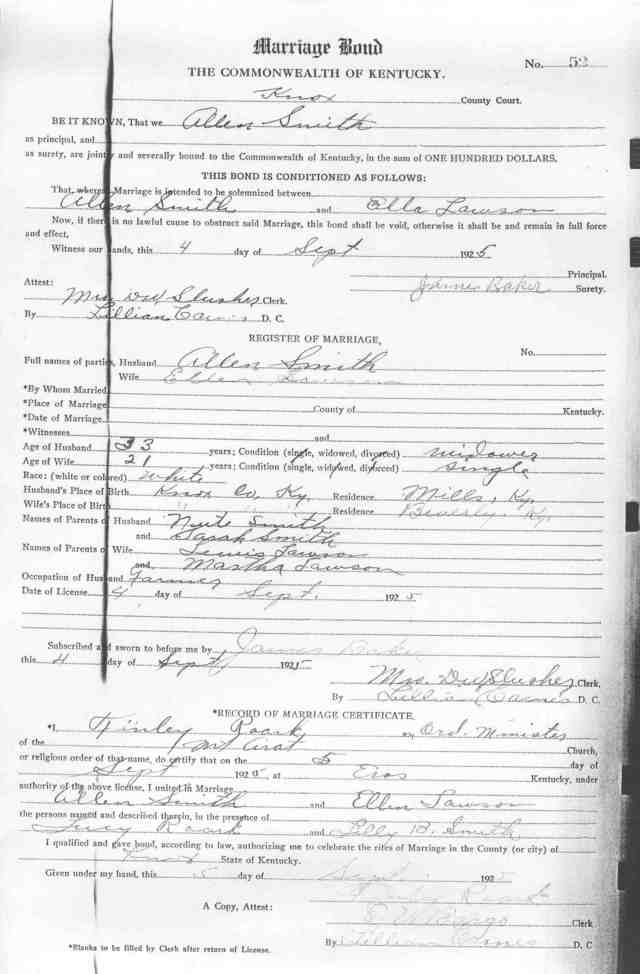 Marriage Bond
No. 52
THE COMMONWEALTH OF KENTUCKY.
Knox County Court.
BE IT KNOWN, That we Allen Smith
as principal, and
as surety, are jointly and severally bound to the Commonwealth of Kentucky, in the sum of ONE HUNDRED DOLLARS.
THIS BOND IS CONDITIONED AS FOLLOWS:
That, whereas Marriage is intended to be solemnized between
Allen Smith and Ella Lawson
Now, if there is no lawful cause to obstruct said Marriage, this bond shall be void, otherwise it shall be and remain in full force
and effect.
Witness our hands, this 4 day of Sept 1925
Principal.
James Baker Surety.
Attest:
Mrs. DW Slusher Clerk.
By Lillian Carnes D. C.
REGISTER OF MARRIAGE,
No.
Full names of parties, Husband Allen Smith
Wife Ellen Lawson
*By Whom Married
*Place of Marriage County of Kentucky.
*Date of Marriage
*Witnesses and
Age of Husband 33 years; Condition (single, widowed, divorced) widower
Age of Wife 21 years; Condition (single, widowed, divorced) single
Race: (white or colored) White
Husband's Place of Birth Knox Co, Ky. Residence Mills, Ky.
Wife's Place of Birth Residence Beverly, Ky.
Names of Parents of Husband Nute Smith
and Sarah Smith
Names of Parents of Wife Lewis Lawson
and Martha Lawson
Occupation of Husband Farmer
Date of License 4 day of Sept. 1925
Subscribed and sworn to before me by James Baker
this 4 day of Sept 1925
Mrs. DW Slusher Clerk,
By Lillian Carnes D. C.
*RECORD OF MARRIAGE CERTIFICATE.
*I, Finley Roark Ord. Minister
of the Mt Arat Church,
or religious order of that name, do certify that on the 5 day of
Sept 1925, at Eros Kentucky, under
authority of the above license, I united in Marriage
Allen Smith and Ellen Lawson
the persons named and described therein, in the presence of
Lucy Roark and Lilly B. Smith
I qualified and gave bond, according to law, authorizing me to celebrate the rites of Marriage in the County (or city) of
Knox State of Kentucky.
Given under my hand, this 5 day of Sept 1925
Finley Roark
A Copy, Attest: Clerk
By Lillian Carnes D. C.
*Blanks to be filled by Clerk after return of License.